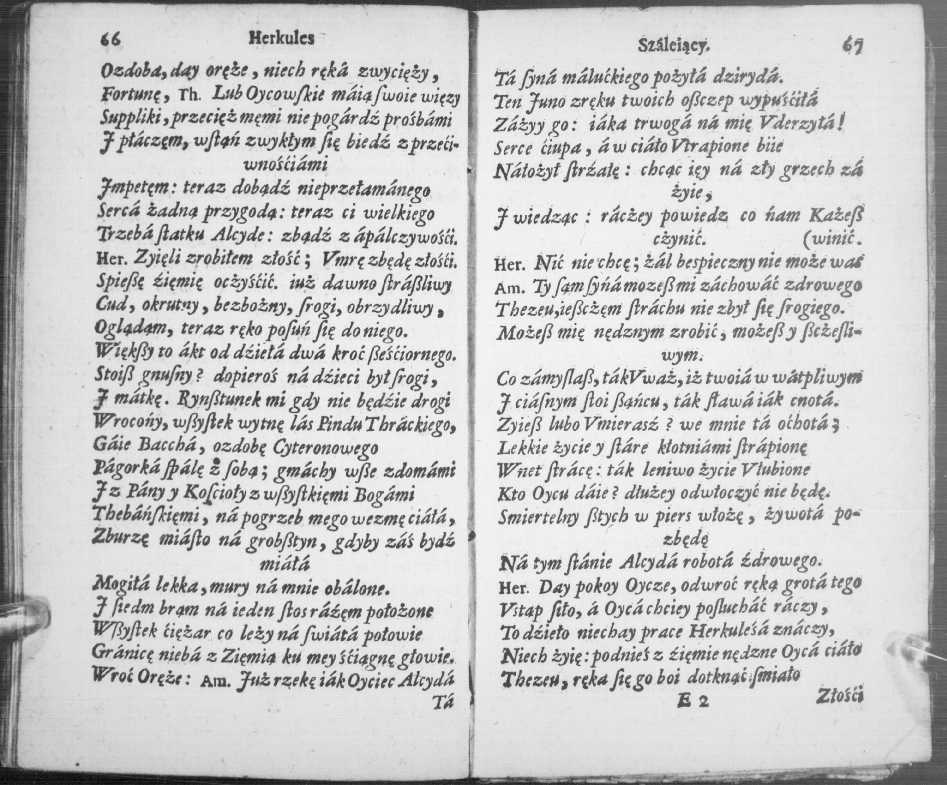 66 Herkules
Ozdoba, day oręże, niech ręká zwycięży,
Fortunę, Th. Lub Oycowſkie máią ſwoie więzy
Suppliki, przecięż męmi nie pogárdź prośbámi
J płáczęm, wſtąń zwykłym ſię biedź z przeći-
wnośćiámi
Jmpetęm: teraz dobądź nieprzełamánego
Sercá żadną przygodą: teraz ci wielkiego
Trzebá ſtatku Alcyde: zbądź z ápálczywośći.
Her. Zyięli zrobiłem złość; Vmrę zbędę złośći.
Spieſzę źięmię oczyśćić. iuż dawno ſtráſzliwy
Cud, okrutny, bezbożny, ſrogi, obrzydliwy,
Oglądąm, teraz ręko poſuń ſię do niego.
Więkſzy to ákt od dźiełá dwá kroć ſześćiornego.
Stoiſz gnuſny? dopieroś ná dźieci był ſrogi,
J mátkę. Rynſztunek mi gdy nie będźie drogi
Wrocońy, wſzyſtek wytnę lás Pindu Thráckiego,
Gáie Bacchá, ozdobę Cyteronowego
Págorká ſpálę z ſobą; gmáchy wſze z domámi
J z Pány y Koſcioły z wſzyſtkięmi Bogámi
Thebáńſkięmi, ná pogrzeb mego wezmę ciáłá,
Zburzę miáſto ná grobſztyn, gdyby záś bydź
miáłá
Mogiłá lekka, mury ná mnie obálone.
J ſiedm brąm ná ieden ſtos ráźęm położone
Wſzyſtek ćiężar co leży ná ſwiátá połowie
Gránicę niebá z Zięmią ku mey śćiągnę głowie.
Wroć Oręże: Am. Już rzekę iák Oyciec Alcydá
Tá
Száleiący. 67
Tá ſyná málućkiego pożyłá dzirydá.
Ten Juno z ręku twoich oſzczep wypuśćiłá
Záżyy go: iáka trwogá ná mię Vderzyłá!
Serce ćiupa, á w ciáło Vtrapione biie
Náłożył ſtrźałę: chcąc ięy ná zły grzech zá
żyie,
J wiedząc: ráczey powiedz co ńam Każeſz
czynić. (winić.
Her. Nić nie chcę; żál bespieczny nie może was
Am. Ty ſąm ſyńá mozeſz mi záchowáć zdrowego
Thezeu, ieſzczęm ſtráchu nie zbył ſię ſrogiego.
Możeſz mię nędznym zrobić, możeſz y ſzcżęſli-
wym.
Co zámyſlaſz, ták Vważ, iż twoiá w wátpliwymi
J ciáſnym ſtoi ſzáńcu, ták ſławá iák cnotá.
Zyieſz lubo Vmierasz? we mnie tá oćhotá;
Lekkie życie y ſtáre kłotniámi ſtrápionę
Wnet ſtrácę: ták leniwo życie Vlubione
Kto Oycu dáie? dłużey odwłoczyć nie będę.
Smiertelny ſztych w piers włożę, żywotá po-
zbędę
Ná tym ſtánie Alcydá robotá źdrowego.
Her. Day pokoy Oycze, odwroć ręką grotá tego
Vstąp ſiło, á Oycá chciey poſłucháć ráczy,
To dźieło niechay prace Herkuleśá znáczy,
Niech żyię: podnieś z źięmie nędzne Oycá ciáło
Thezeu, ręka ſię go boi dotknąć ſmiało
E 2 Złośći